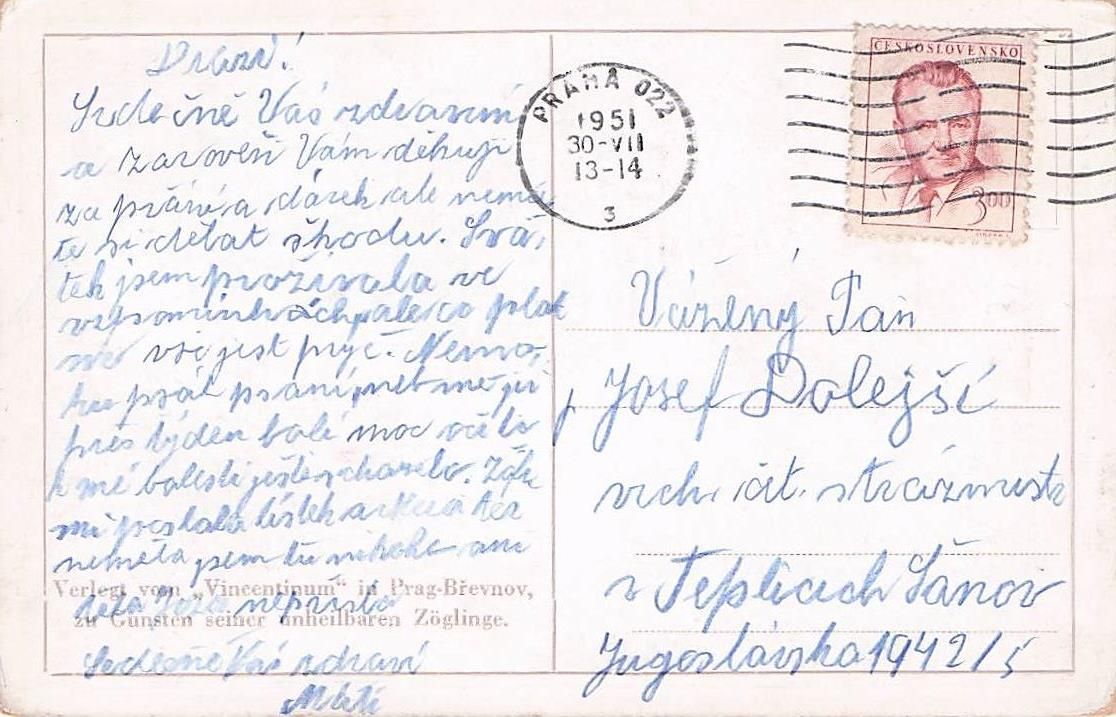 Drazí!
Srdečně Vás zdravím
a zároveň Vám děkuji
za přání a dárek ale nemá
te si dělat škodu. Svá,
tek jsem prožívala ve
vzpomínkách, ale co plat
né vše jest pryč. Nemo,
hu psát psaní, neb mě již
přes týden bolí moc oči to
k mé bolesti ještě scházelo.
mi poslala lístek a
neměla jsem tu nikoho ani
teta nepřišla
Srdečně Vás zdraví
Máti
Verlegt vom „Vincentinum“ in Prag-Břevnov,
zu Gunsten seiner unheilbaren Zöglinge.
PRAHA 022
1951
30-VII
13-14
3
ČESKOSLOVENSKO
3.00
Vážený Pán
Josef Dolejší
vrch. čet. strážmistr
v Teplicích Šanov
Jugoslávska 1942/5